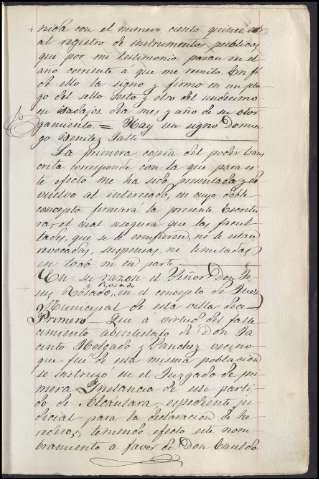 nida con el numero ciento quince
al registro de instrumentos publicos
que por mi testimonio pasan en el
año corriente a que me remito. En fe
de ello la signo y firmo en un plie
go del sello sexto y otro del undecimo
en Badajoz dia mes y año de su otor
gamiento = Hay un signo Domin
go Benitez
La primera copia del poder trans
crita corresponde con la que para es
te efecto me ha sido presentada y de
vuelvo al interesado, en cuyo doble
concepto firmara la presente Escritu
ra; el cual asegura que las facul
tades que se le confieren no le estan
revocadas, suspensas ni limitadas
en todo ni en parte
En su razon el Señor Don Jo
sé Rosado, en el concepto de
Municipal de esta villa dice
Primero. Que a virtud del falle
cimiento abintestato de Don Ja
cinto Holgado y Sanchez vecino
que fué de esta misma poblacion
se instruyó en el Juzgado de pri
mera Instancia de este parti
do de Alcantara, espediente ju
dicial para la declaracion de he
rederos, teniendo efecto este nom
bramiento a favor de Don